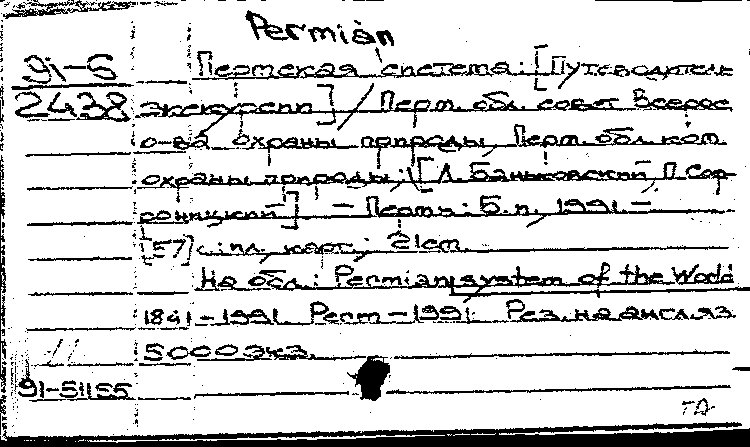 Permian
91-6 Пермская система: [Путеводитель
2438 экскурсии] / Перм. обл. совет Всерос
о-ва охраны природы, Перм. обл. ком
охраны природы; [Л. Баньковский, П. Соф-
роницкий] – Пермь: Б. и., 1991.–
[57] с.: ил., карт.; 21см.
На обл.: Permian system of the World
1841-1991. Perm-1991. Рез. на англ. яз.
11 5000 экз.
91-51155
ТА